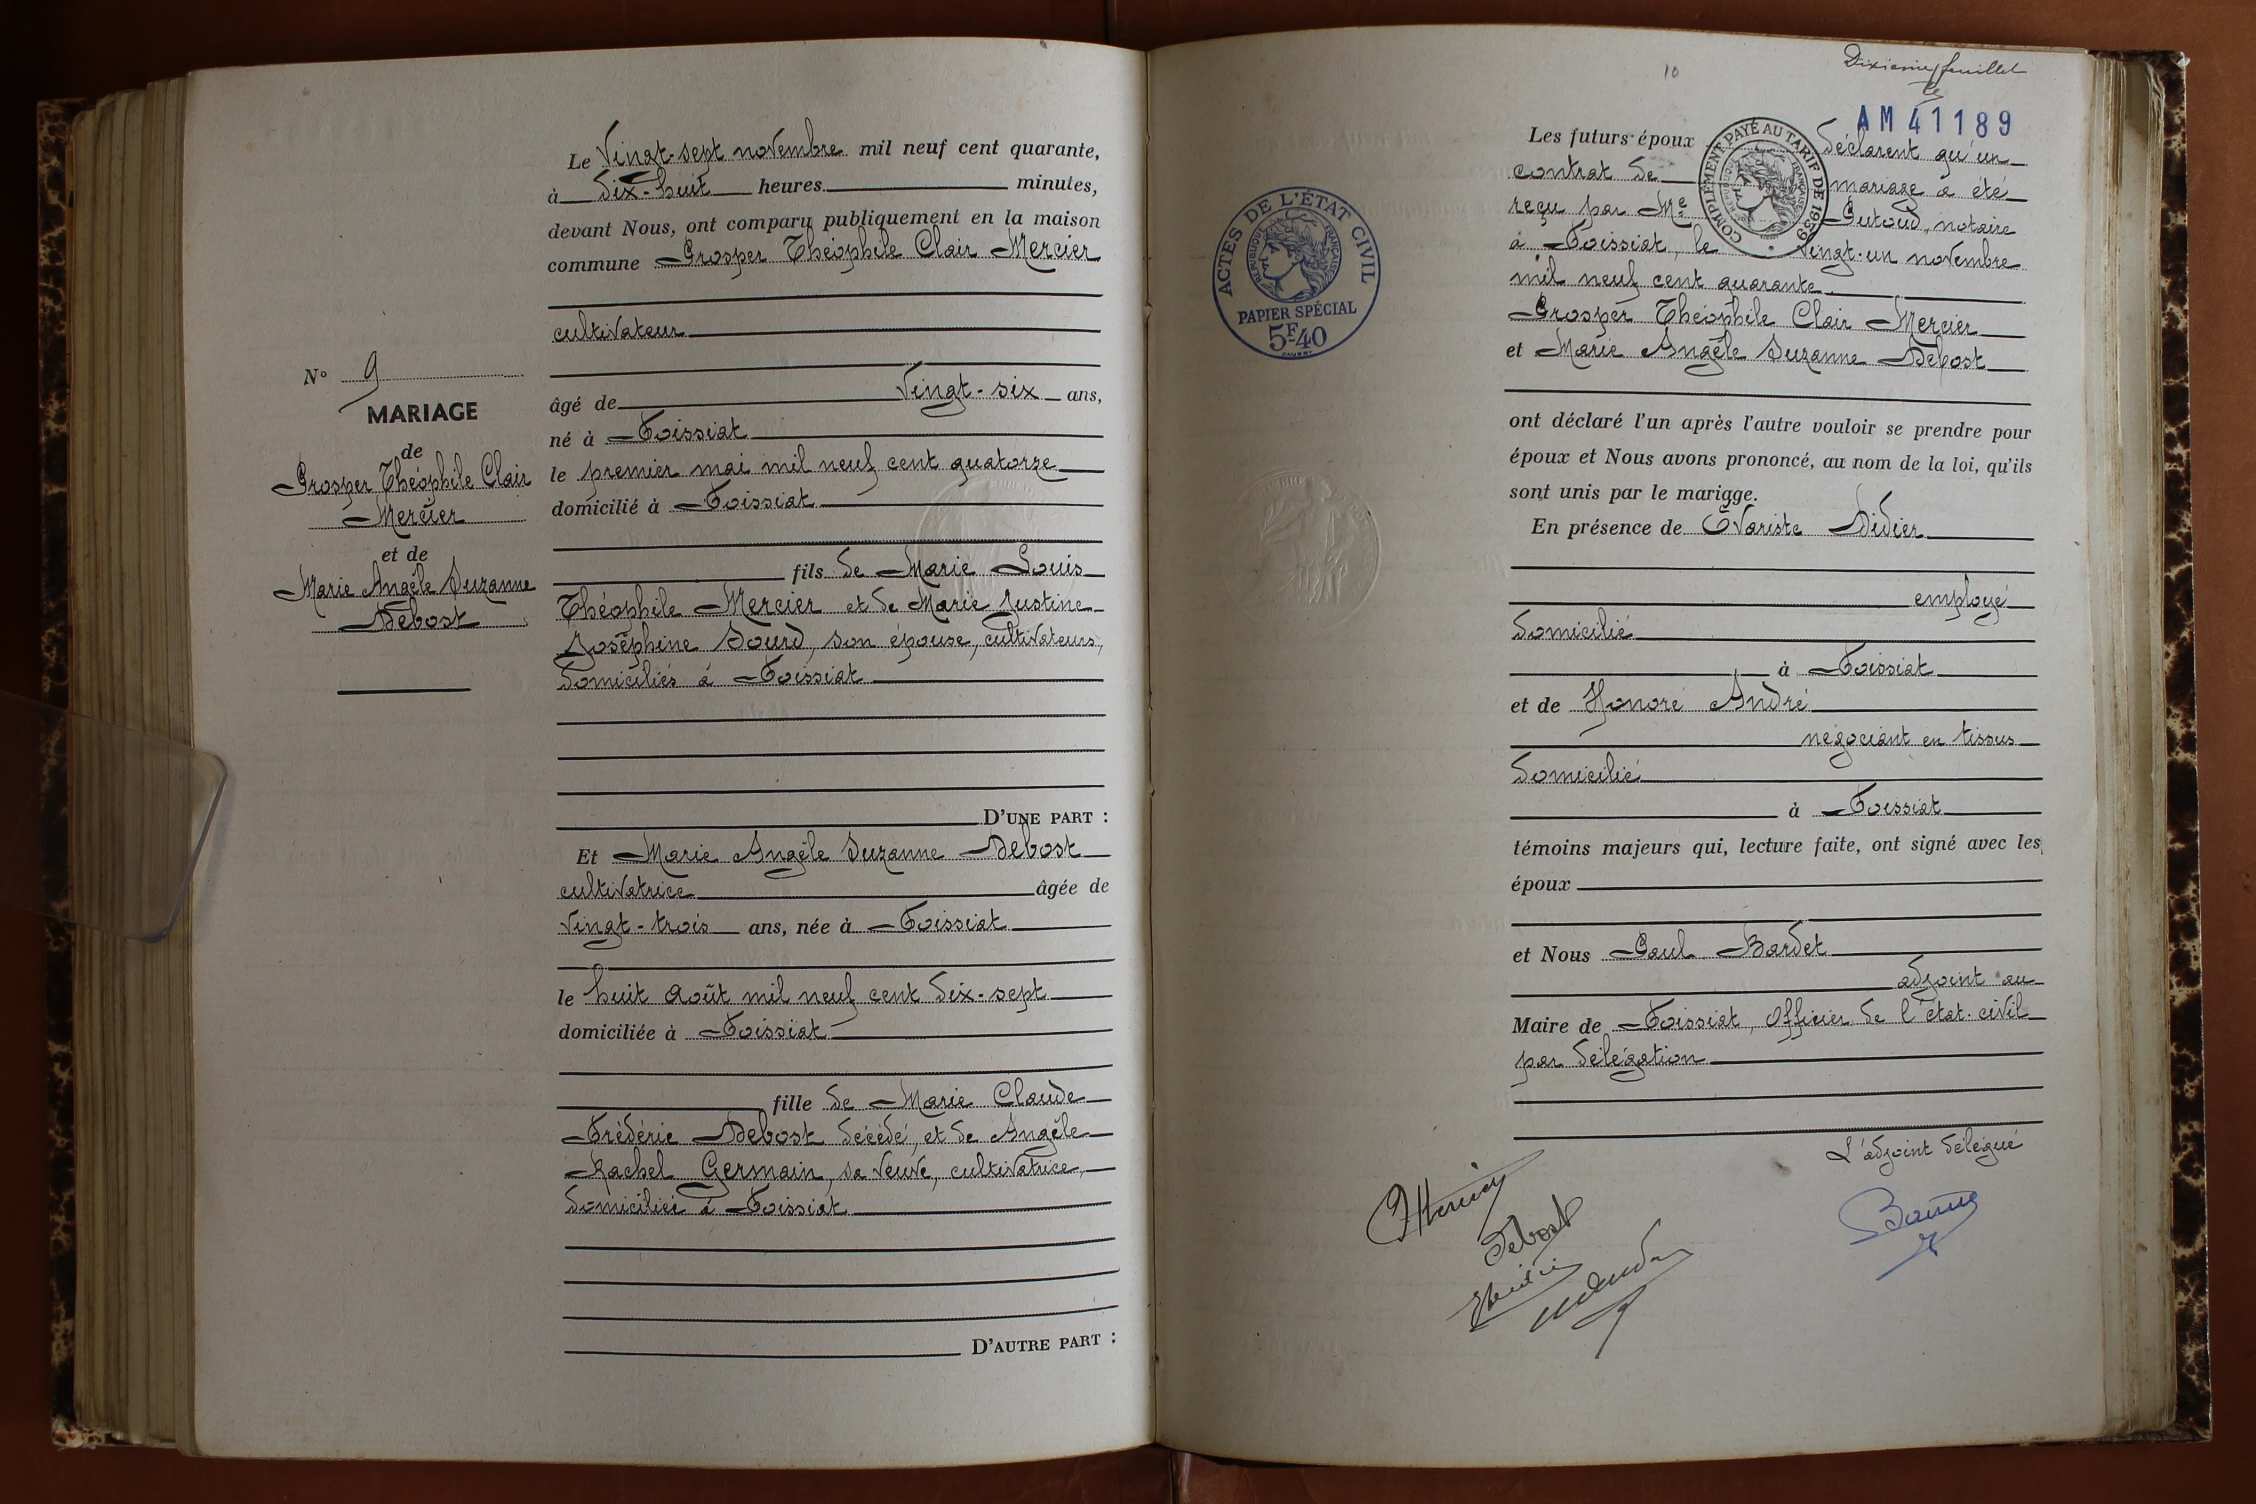 Le vingt-sept novembre mil neuf cent quarante,
à dix-huit heures minutes,
devant Nous, ont comparu publiquement en la maison
commune Prosper Théophile Clair Mercier
cultivateur
âgé de vingt-six ans,
né à Foissiat
le premier mai mil neuf cent quatorze
domicilié à Foissiat
fils de Marie Louis
Théophile Mercier et de Marie Justine
Joséphine Sourd, son épouse, cultivateurs,
domiciliés à Foissiat
D'UNE PART :
Et Marie Angèle Suzanne Debost
cultivatrice âgée de
vingt-trois ans, née à Foissiat
le huit août mil neuf cent dix-sept
domiciliée à Foissiat
fille de Marie Claude
Frédéric Debost décédé, et de Angèle
Rachel Germain, sa veuve, cultivatrice,
domiciliée à Foissiat
D'AUTRE PART :
N° 9
MARIAGE
de
Prosper Théophile Clair
Mercier
et de
Marie Angèle Suzanne
Debost
10
Dixième feuillet
AM 41189
ACTES DE L'ÉTAT CIVIL
RÉPUBLIQUE FRANÇAISE
PAPIER SPÉCIAL
5F40
COMPLÉMENT PAYÉ AU TARIF DE 1939
RÉPUBLIQUE FRANÇAISE
Les futurs époux déclarent qu'un
contrat de mariage a été
reçu par Me Putoud, notaire
à Foissiat, le vingt-un novembre
mil neuf cent quarante.
Prosper Théophile Clair Mercier
et Marie Angèle Suzanne Debost
ont déclaré l'un après l'autre vouloir se prendre pour
époux et Nous avons prononcé, au nom de la loi, qu'ils
sont unis par le mariage.
En présence de Evariste Didier
employé
domicilié
à Foissiat
et de Honoré André
négociant en tissus
domicilié
à Foissiat
témoins majeurs qui, lecture faite, ont signé avec les
époux
et Nous Paul Bardet
adjoint au
Maire de Foissiat, Officier de l'état-civil
par délégation
L'adjoint délégué
Debost